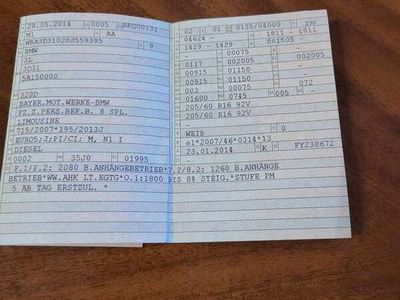 28.05.2014 0005 BKQ00131
M1 AA
WBA3D31020J559395 9
BMW
3L
3D31
5A150000
320D
BAYER.MOT.WERKE-BMW
FZ.Z.PERS.BEF.B. 8 SPL.
LIMOUSINE
715/2007*195/2013J
EURO5;J;PI/CI; M, N1 I
DIESEL
0002 35J0 01995
02 01 0135/04000 230
04624 - 1811 - 1811
1429 - 1429 001505 -
00075 - -
0117 002005 002005
00915 00075 -
00915 01150 -
003 00075 072
01600 0745 005 -
205/60 R16 92V
205/60 R16 92V
-
WEIß 0
e1*2007/46*0314*13
23.01.2014 K FY238672
F.1/F.2: 2080 B.ANHÄNGEBETRIEB*7.2/8.2: 1260 B.ANHÄNGE
BETRIEB*WW.AHK LT.EGTG*O.1:1800 BIS 8% STEIG.*STUFE PM
5 AB TAG ERSTZUL. *